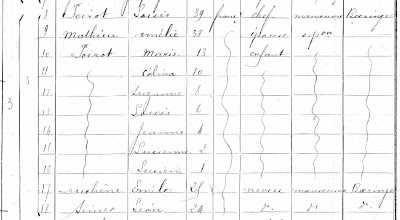 8 Poirot Louis 39 franc chef manoeuvre Baeringer
9 Mathieu Amélie 38 épouse s.pon
10 Poirot Marie 13 enfant
11 Célina 10
12 Suzanne 8
13 Louis 6
14 Jeanne 4
15 Lucienne 2
16 Lucien 1
17 Duchêne Emile 25 neveu manoeuvre Baeringer
3 3
18 Léon 24 d° d° d°